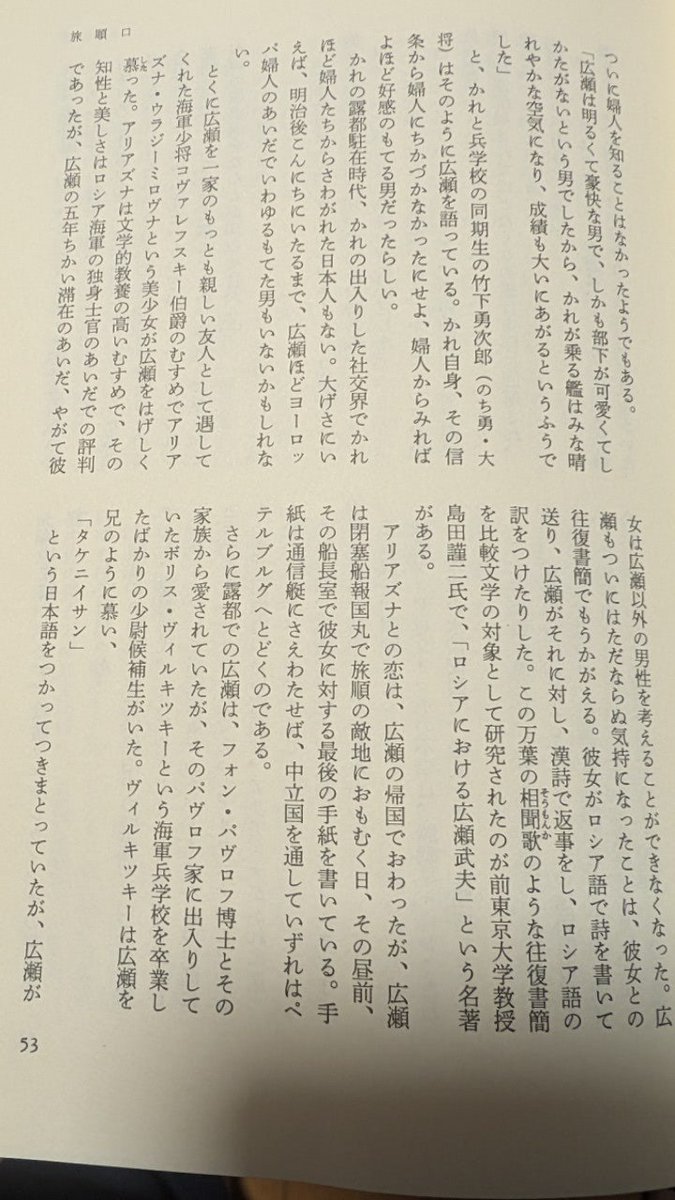 旅順口
ついに婦人を知ることはなかったようでもある。
「広瀬は明るくて豪快な男で、しかも部下が可愛くてし
かたがないという男でしたから、かれが乗る艦はみな晴
れやかな空気になり、成績も大いにあがるというふうで
した」
と、かれと兵学校の同期生の竹下勇次郎（のち勇・大
将）はそのように広瀬を語っている。かれ自身、その信
条から婦人にちかづかなかったにせよ、婦人からみれば
よほど好感のもてる男だったらしい。
かれの露都駐在時代、かれの出入りした社交界でかれ
ほど婦人たちからさわがれた日本人もない。大げさにい
えば、明治後こんにちにいたるまで、広瀬ほどヨーロッ
パ婦人のあいだでいわゆるもてた男もいないかもしれな
い。
とくに広瀬を一家のもっとも親しい友人として遇して
くれた海軍少将コヴァレフスキー伯爵のむすめでアリア
ズナ・ウラジーミロヴナという美少女が広瀬をはげしく
慕った。アリアズナは文学的教養の高いむすめで、その
知性と美しさはロシア海軍の独身士官のあいだでの評判
であったが、広瀬の五年ちかい滞在のあいだ、やがて彼
女は広瀬以外の男性を考えることができなくなった。広
瀬もついにはただならぬ気持になったことは、彼女との
往復書簡でもうかがえる。彼女がロシア語で詩を書いて
送り、広瀬がそれに対し、漢詩で返事をし、ロシア語の
訳をつけたりした。この万葉の相聞歌のような往復書簡
を比較文学の対象として研究されたのが前東京大学教授
島田謹二氏で、「ロシアにおける広瀬武夫」という名著
がある。
アリアズナとの恋は、広瀬の帰国でおわったが、広瀬
は閉塞船報国丸で旅順の敵地におもむく日、その昼前、
その船長室で彼女に対する最後の手紙を書いている。手
紙は通信艇にさえわたせば、中立国を通していずれはペ
テルブルグへとどくのである。
さらに露都での広瀬は、フォン・パヴロフ博士とその
家族から愛されていたが、そのパヴロフ家に出入りして
いたボリス・ヴィルキツキーという海軍兵学校を卒業し
たばかりの少尉候補生がいた。ヴィルキツキーは広瀬を
兄のように慕い、
「タケニイサン」
という日本語をつかってつきまとっていたが、広瀬が
53